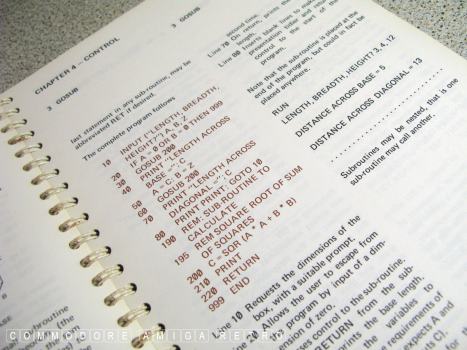 CHAPTER 4 – CONTROL
3 GOSUB
3 GOSUB
last statement in any sub-routine, may be
abbreviated RET if desired.
The complete program follows
10 INPUT ("LENGTH, BREADTH,
HEIGHT?") A, B, Z
20 IF A = 0 OR B = 0 THEN 999
30 PRINT "LENGTH ACROSS
40 BASE ="; C
50 GOSUB 200
60 A = C: B = Z
GOSUB 200
70 PRINT "LENGTH ACROSS
DIAGONAL ="; C
80 PRINT PRINT: GOTO 10
190 REM: SUB-ROUTINE TO
CALCULATE
195 REM SQUARE ROOT OF SUM
OF SQUARES
200 C = SQR (A * A + B * B)
210 PRINT
220 RETURN
999 END
second time.
Line 70 On return, prints the
length.
Line 80 Inserts black lines to make
presentation tidier and
program.
Note that the sub-routine is placed at the
end of the program, but could in fact be
placed anywhere.
RUN
LENGTH, BREADTH, HEIGHT? 3, 4, 12
DISTANCE ACROSS BASE = 5
DISTANCE ACROSS DIAGONAL = 13
Subroutines may be nested, that is one
sub-routine may call another.
Line 10 Requests the dimensions of the
box, with a suitable prompt.
allows the user to escape from
program by input of a dim-
ension of zero.
control to the sub-routine.
RETURN from the sub-
prints the base length.
variables to
requirements of
expects A and
C).
COMMODORE AMIGA RETRO